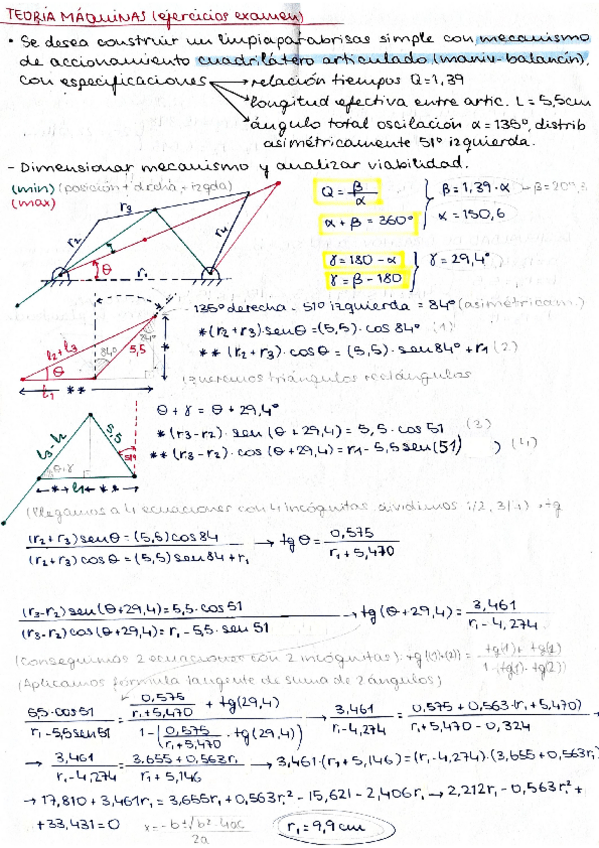 TEORÍA MÁQUINAS (ejercicios examen)
• Se desea construir un limpiaparabrisas simple con mecanismo
de accionamiento cuadrilátero articulado (maniv-balancín),
con especificaciones → relación tiempos Q=1,39
→ longitud efectiva entre artic. L=5,5cm
→ ángulo total oscilación α=135º, distrib
asimétricamente 51º izquierda.
- Dimensionar mecanismo y analizar viabilidad.
(min) (posición + dcha = izqda)
(max)
r3
r2
r4
θ
r1
Q = β/α
α + β = 360º
β = 1,39·α
α = 150,6
γ = 180 - α
γ = β - 180
γ = 29,4º
135º derecha - 51º izquierda = 84º (asimétricam.)
*(r2+r3)·senθ = (5,5)·cos 84º (1)
**(r2+r3)·cosθ = (5,5)·sen 84º + r1 (2)
triángulos rectángulos
l2+l3
θ
84º
84º
5,5
*
l1
**
θ + γ = θ + 29,4º
*(r3-r2)·sen(θ+29,4) = 5,5·cos 51 (3)
**(r3-r2)·cos(θ+29,4) = r1 - 5,5 sen(51) (4)
l3-l2
5,5
51º
θ+γ
(llegamos a 4 ecuaciones con 4 incógnitas dividimos 1/2, 3/4) → tg
(r2+r3)senθ = (5,5)cos84 / (r2+r3)cosθ = (5,5)sen84 + r1 → tgθ = 0,575 / r1+5,470
(r3-r2)sen(θ+29,4) = 5,5·cos51 / (r3-r2)cos(θ+29,4) = r1 - 5,5·sen51 → tg(θ+29,4) = 3,461 / r1-4,274
(Conseguimos 2 ecuaciones con 2 incógnitas): tg((1)+(2)) = tg(1)+tg(2) / 1-(tg(1)·tg(2))
(Aplicamos fórmula tangente de suma de 2 ángulos)
5,5·cos51 / r1-5,5sen51 = 0,575/r1+5,470 + tg(29,4) / 1-(0,575/r1+5,470 · tg(29,4)) → 3,461 / r1-4,274 = 0,575+0,563·(r1+5,470) / r1+5,470-0,324
→ 3,461 / r1-4,274 = 3,655+0,563r1 / r1+5,146 → 3,461·(r1+5,146) = (r1-4,274)·(3,655+0,563r1)
→ 17,810+3,461r1 = 3,655r1+0,563r1² - 15,621 - 2,406r1 → 2,212r1 - 0,563r1² +
+33,431 = 0 x = -b±√b²-4ac / 2a r1 = 9,9 cm